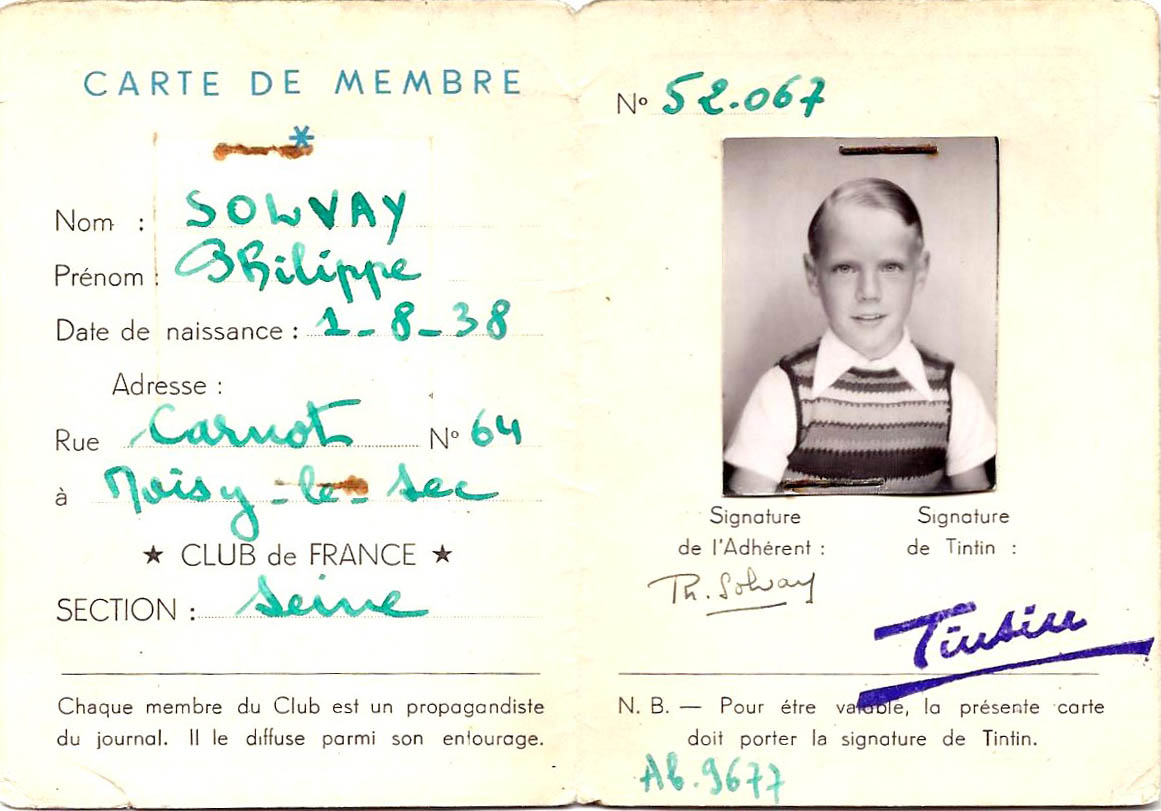 CARTE DE MEMBRE
*
Nom : SOLVAY
Prénom : Philippe
Date de naissance : 1-8-38
Adresse :
Rue Carnot N° 64
à Noisy-le-Sec
★ CLUB de FRANCE ★
SECTION : Seine
Chaque membre du Club est un propagandiste
du journal. Il le diffuse parmi son entourage.
N° 52.067
Signature
de l'Adhérent :
Ph. Solvay
Signature
de Tintin :
Tintin
N. B. — Pour étre valable, la présente carte
doit porter la signature de Tintin.
Ab. 9677